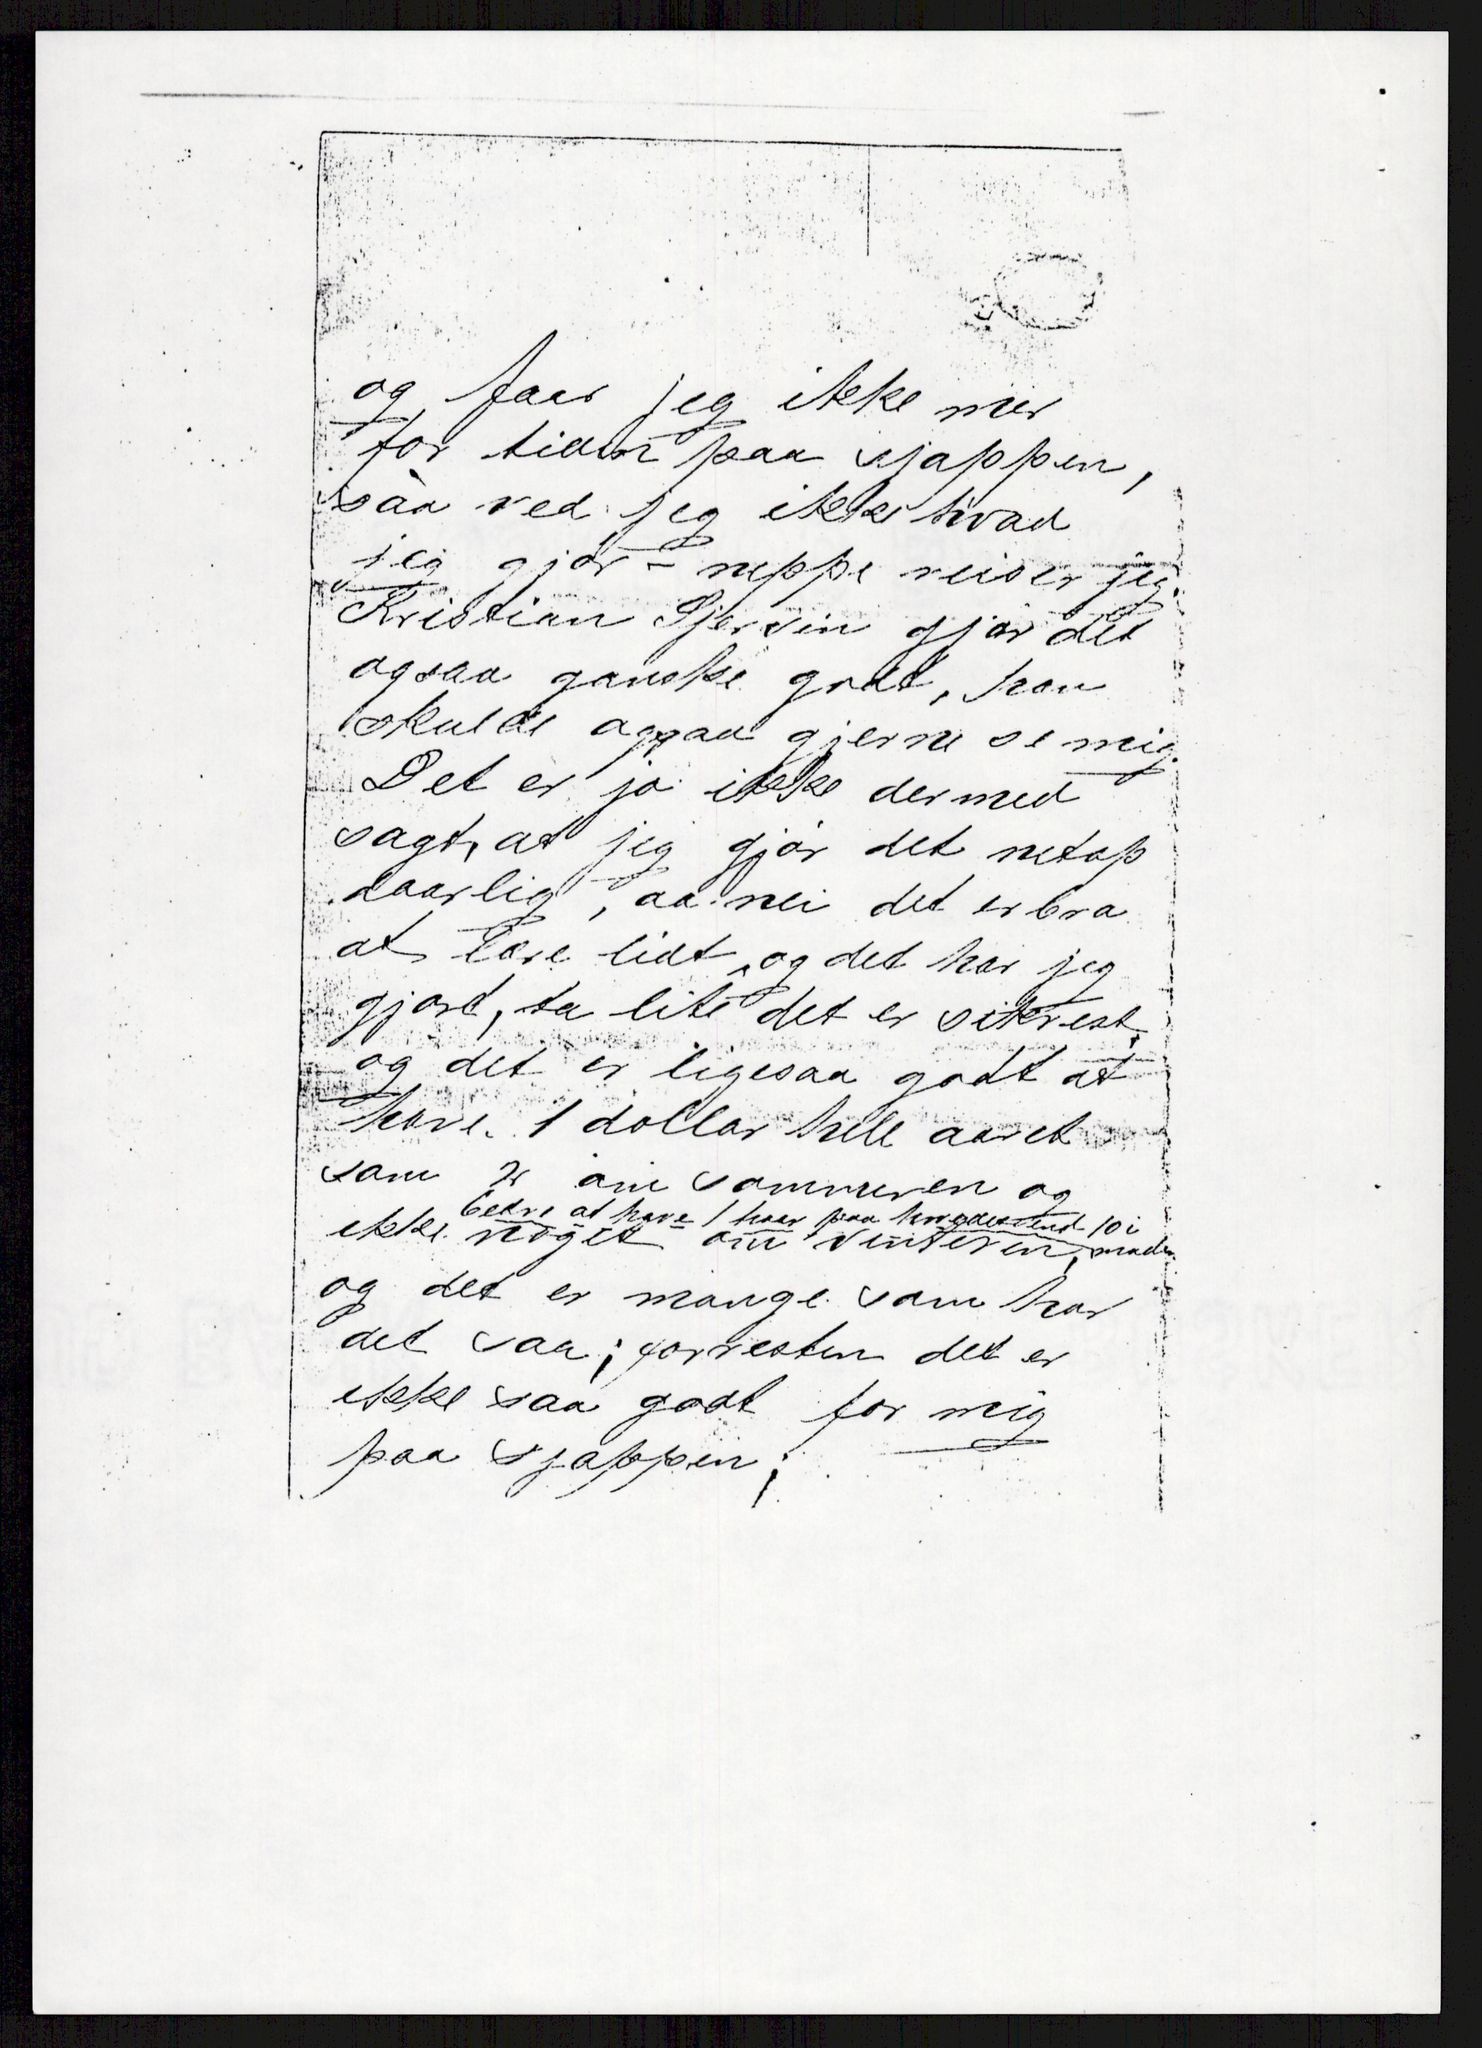 og faar jeg ikke mer
for tiden paa sjappen,
saa ved jeg ikke hvad
jeg gjør – neppe reiser jeg.
Kristian Gjervin gjør det
ogsaa ganske godt, han
skulde ogsaa gjerne se mig.
Det er jo ikke dermed
sagt, at jeg gjør det netop
daarlig, aa nei det er bra
at lære lidt, og det har jeg
gjort, ta lite det er sikrest,
og det er ligesaa godt at
have 1 dollar hele aaret
som 2 om sommeren og
bedre at have 1 haar paa hovedet end 10 i maden
ikke noget om vinteren,
og det er mange som har
det saa; forresten det er
ikke saa godt for mig
paa sjappen;